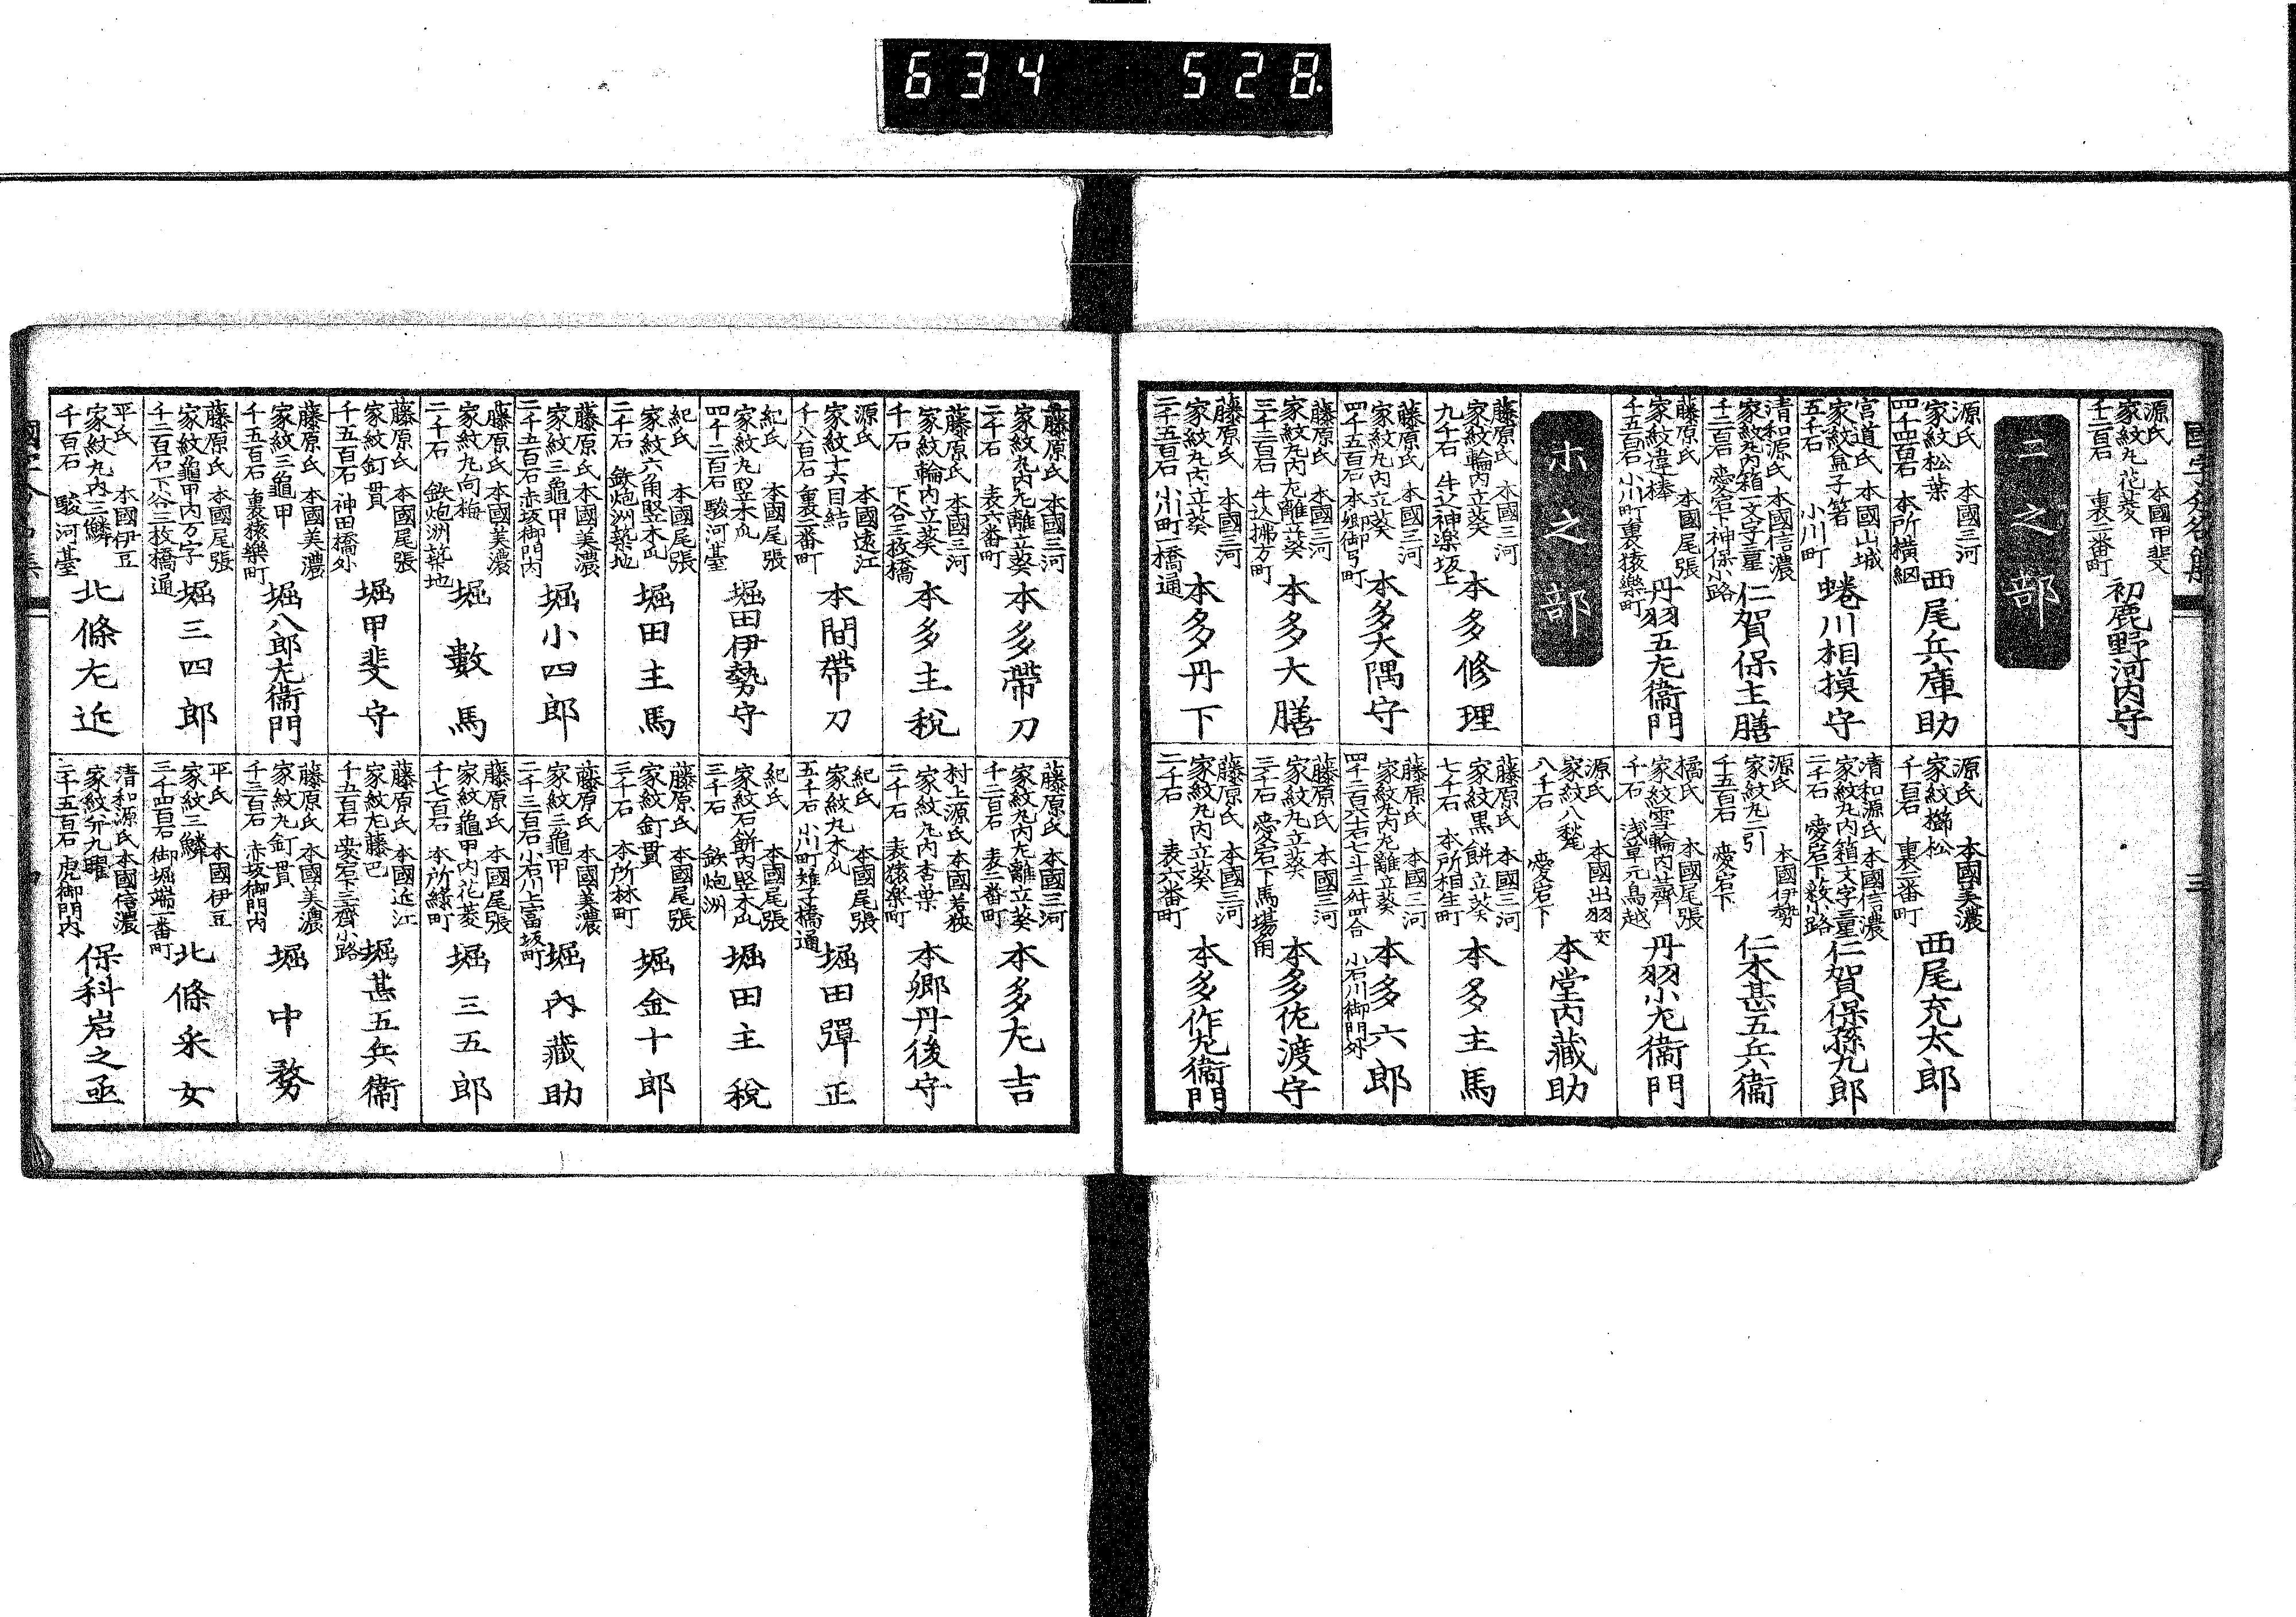 634 528
國字分名集
三
源氏 本國甲斐
家紋丸花菱
千二百石 裏二番町
初鹿野河内守
ニ之部
源氏 本國三河
家紋松葉
四千四百石 本所横網
西尾兵庫助
源氏 本國美濃
家紋櫛松
千百石 裏二番町
西尾充太郎
宮道氏 本國山城
家紋盒子箸
五千石 小川町
蜷川相摸守
清和源氏 本國信濃
家紋丸内箱一文字二重
二千石 愛宕下藪小路
仁賀保孫九郎
清和源氏 本國信濃
家紋丸内箱一文字二重
千二百石 愛宕下神保小路
仁賀保主膳
源氏 本國伊勢
家紋丸二引
千五百石 愛宕下
仁木甚五兵衞
藤原氏 本國尾張
家紋違棒
千五百石 小川町裏猿樂町
丹羽五左衞門
橘氏 本國尾張
家紋雪輪内薺
千石 浅草元鳥越
丹羽小左衞門
ホ之部
源氏 本國出羽 交
家紋八鷲
八千石 愛宕下
本堂内藏助
藤原氏 本國三河
家紋輪内立葵
九千石 牛込神楽坂上
本多修理
藤原氏 本國三河
家紋黒餅立葵
七千石 本所相生町
本多主馬
藤原氏 本國三河
家紋丸内立葵
四千五百石 本郷御弓町
本多大隅守
藤原氏 本國三河
家紋丸内左離立葵
四千二百六十石七斗三舛四合 小石川御門外
本多六郎
藤原氏 本國三河
家紋丸内左離立葵
三千三百石 牛込拂方町
本多大膳
藤原氏 本國三河
家紋丸立葵
三千石 愛宕下馬場角
本多佐渡守
藤原氏 本國三河
家紋丸内立葵
二千五百石 小川町一橋通
本多丹下
藤原氏 本國三河
家紋丸内立葵
二千石 表六番町
本多作左衞門
藤原氏 本國三河
家紋丸内左離立葵
二千石 表六番町
本多帶刀
藤原氏 本國三河
家紋丸内左離立葵
千二百石 表二番町
本多左吉
藤原氏 本國三河
家紋輪内立葵
千石 下谷三枚橋
本多主税
村上源氏 本國若狹
家紋丸内杏葉
二千石 表猿樂町
本郷丹後守
源氏 本國遠江
家紋十六目結
千八百石 裏二番町
本間帶刀
紀氏 本國尾張
家紋丸木瓜
五千石 小川町雉子橋通
堀田彈正
紀氏 本國尾張
家紋丸内竪木瓜
四千二百石 駿河臺
堀田伊勢守
紀氏 本國尾張
家紋石餅内竪木瓜
三千石 鉄炮洲
堀田主税
紀氏 本國尾張
家紋六角竪木瓜
二千石 鉄炮洲築地
堀田主馬
藤原氏 本國尾張
家紋釘貫
三千石 本所林町
堀金十郎
藤原氏 本國美濃
家紋三龜甲
二千五百石 赤坂御門内
堀小四郎
藤原氏 本國美濃
家紋三龜甲
二千三百石 小石川上富坂町
堀内藏助
藤原氏 本國美濃
家紋丸向梅
二千石 鉄炮洲築地
堀數馬
藤原氏 本國尾張
家紋龜甲内花菱
千七百石 本所緑町
堀三五郎
藤原氏 本國尾張
家紋釘貫
千五百石 神田橋外
堀甲斐守
藤原氏 本國近江
家紋左藤巴
千五百石 愛宕下三齊小路
堀甚五兵衞
藤原氏 本國美濃
家紋三龜甲
千五百石 裏猿樂町
堀八郎左衞門
藤原氏 本國美濃
家紋丸釘貫
千三百石 赤坂御門内
堀中務
藤原氏 本國尾張
家紋龜甲内万字
千二百石 下谷三枚橋通
堀三四郎
平氏 本國伊豆
家紋三鱗
三千四百石 御堀端一番町
北條采女
平氏 本國伊豆
家紋丸内三鱗
千百石 駿河臺
北條左近
清和源氏 本國信濃
家紋并九曜
二千五百石 虎御門内
保科岩之亟